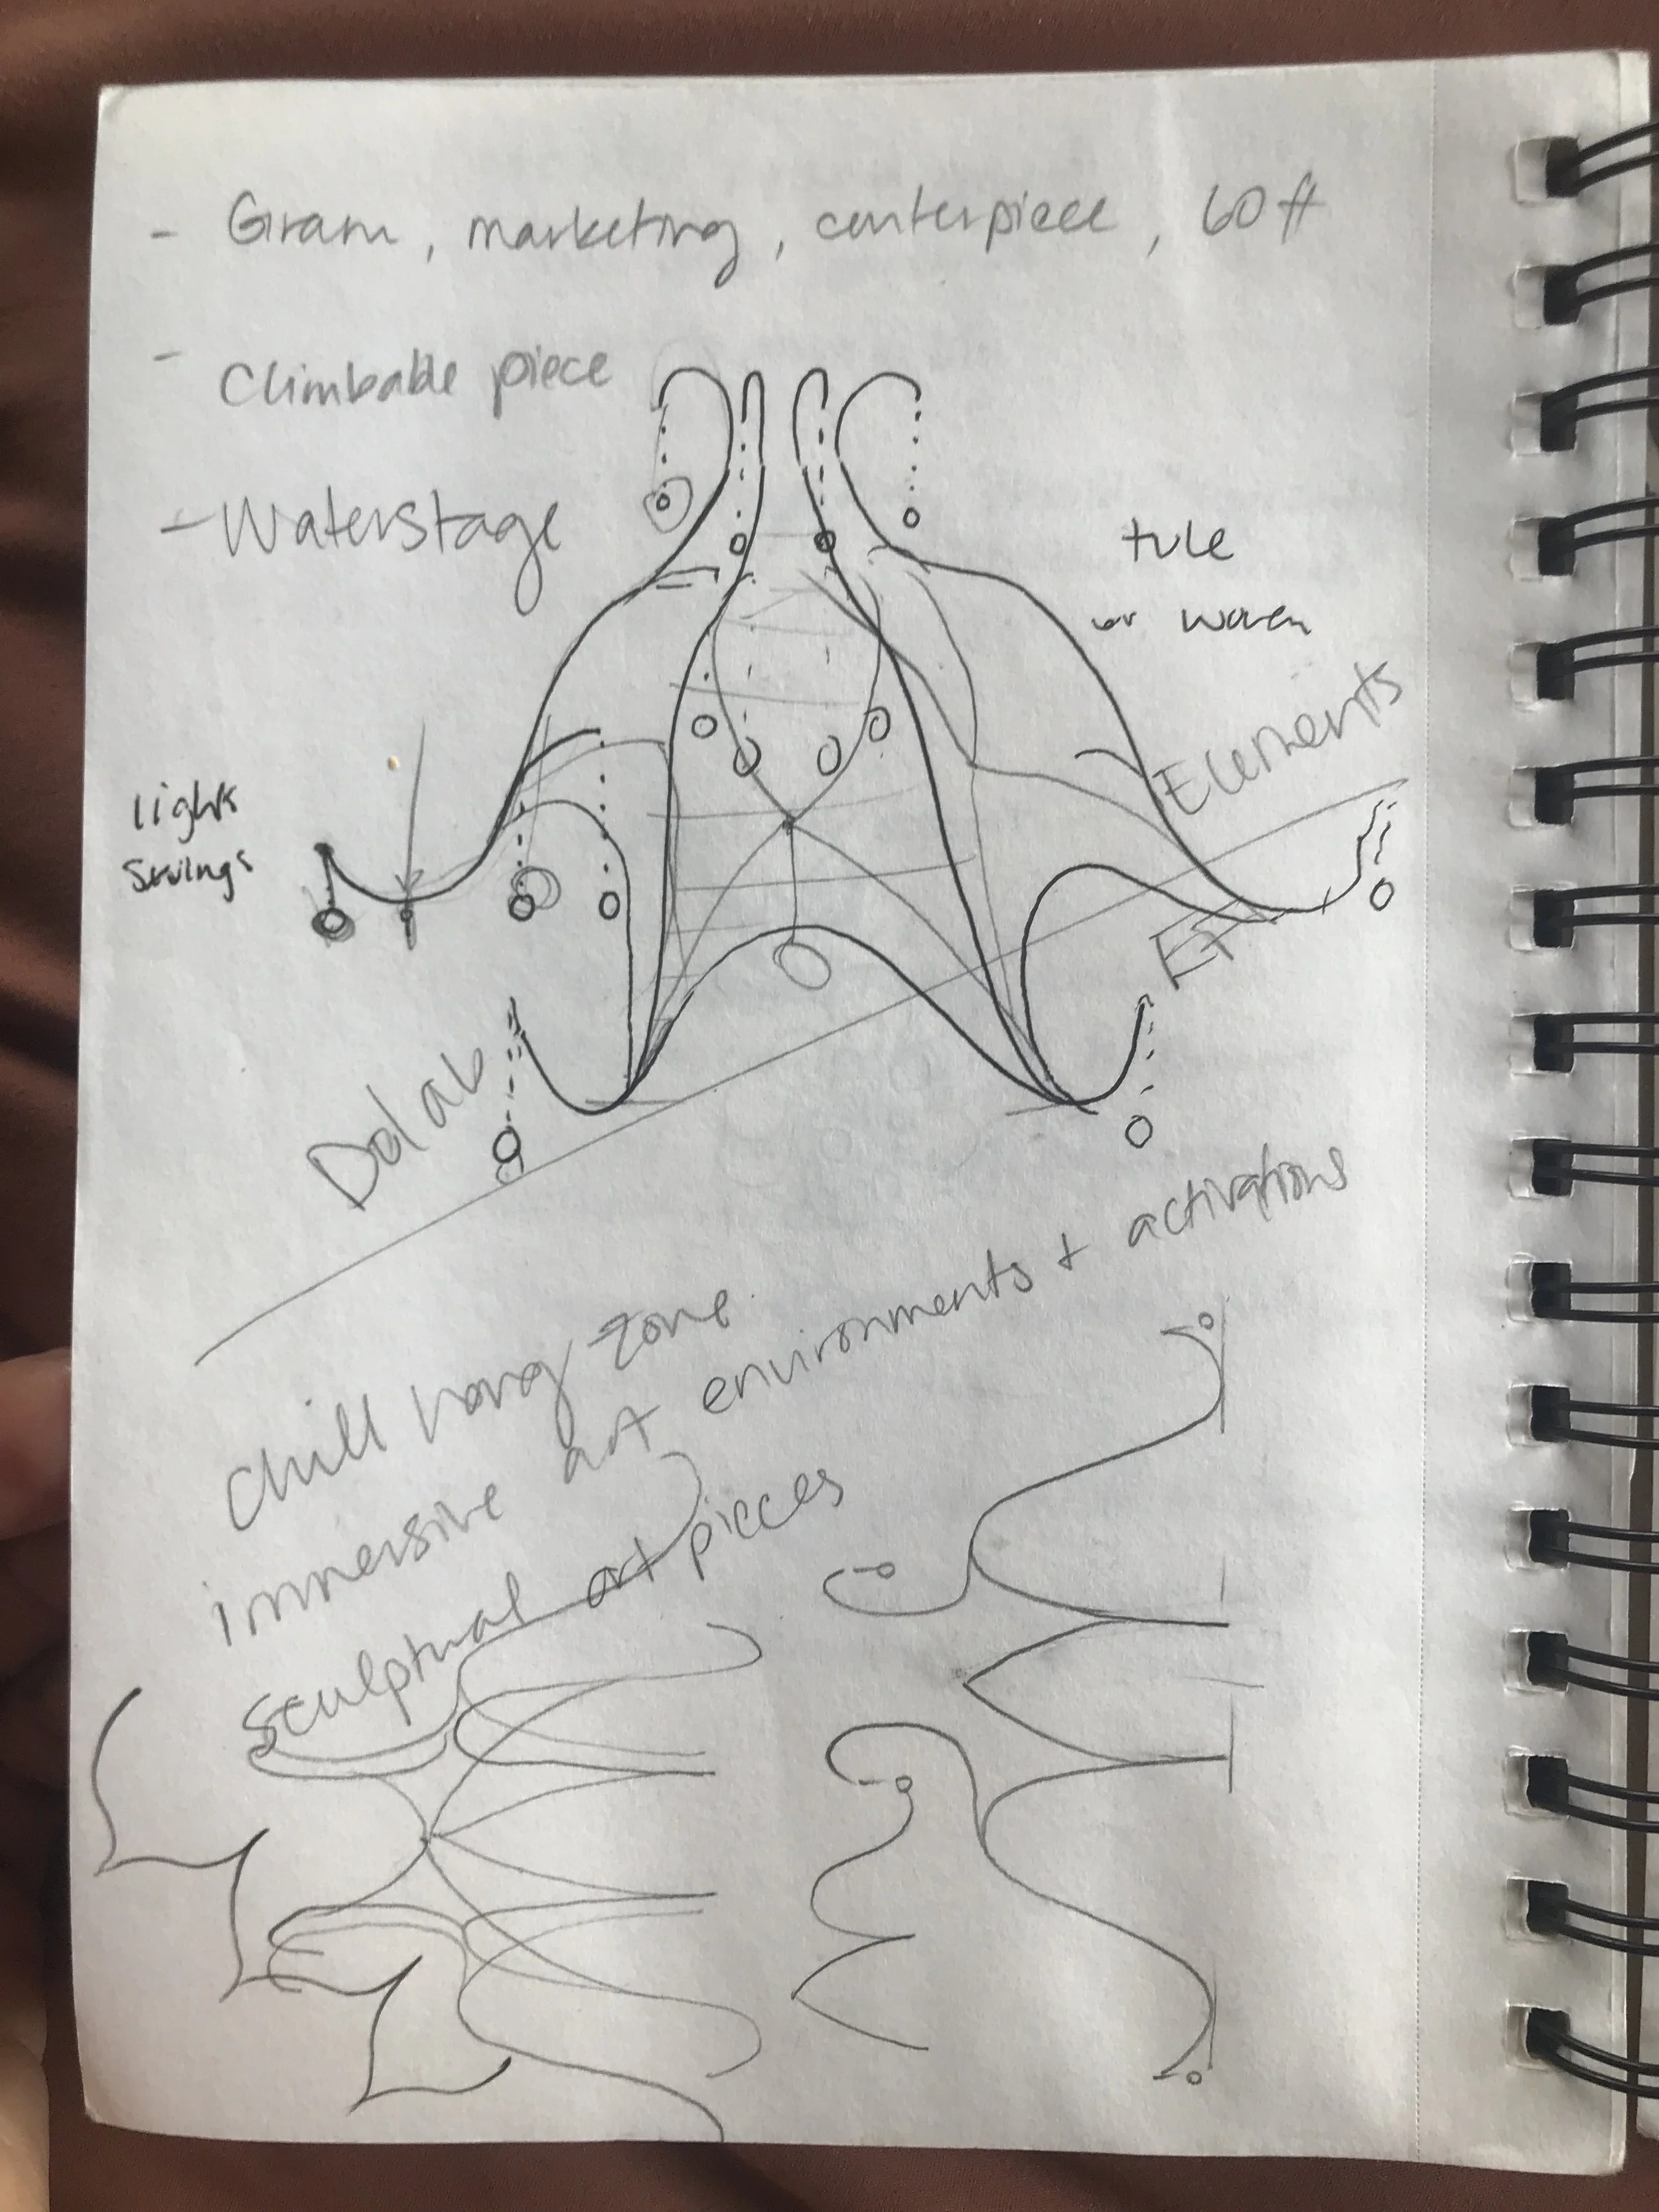 - Gram, marketing, centerpiece, 60ft
- Climbable piece
- Waterstage
tule
or woven
Elements
light
swings
El
DoLab
Chill hang zone
immersive art environments + activations
sculptual art pieces